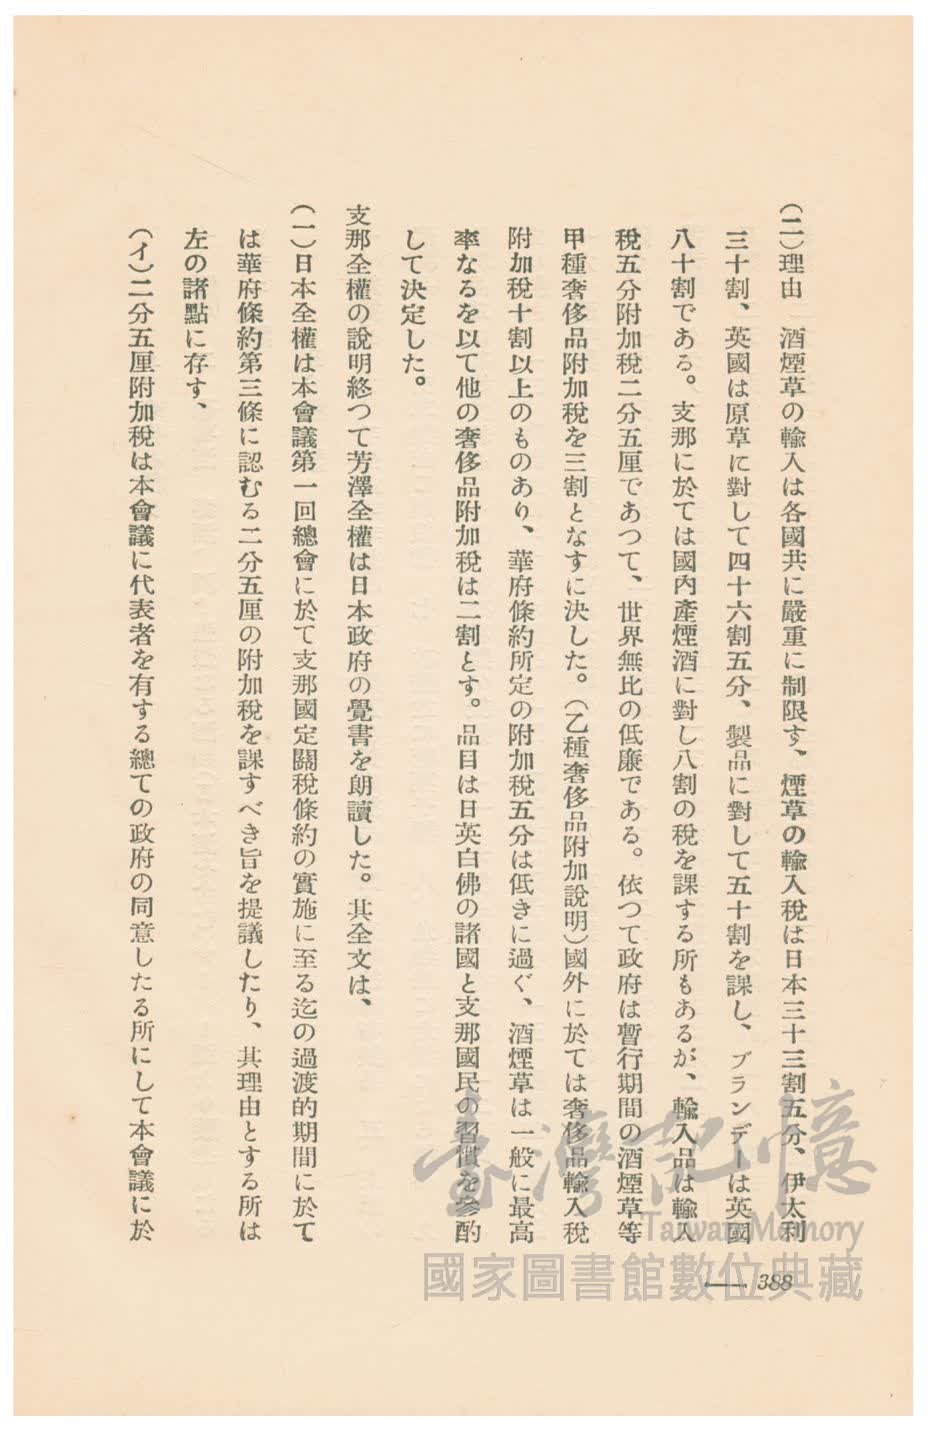 (二)理由　酒煙草の輸入は各國共に嚴重に制限す、煙草の輸入稅は日本三十三割五分、伊太利
三十割、英國は原草に對して四十六割五分、製品に對して五十割を課し、ブランデーは英國
八十割である。支那に於ては國內產煙酒に對し八割の稅を課する所もあるが、輸入品は輸入
稅五分附加稅二分五厘であつて、世界無比の低廉である。依つて政府は暫行期間の酒煙草等
甲種奢侈品附加稅を三割となすに決した。(乙種奢侈品附加說明)國外に於ては奢侈品輸入稅
附加稅十割以上のものあり、華府條約所定の附加稅五分は低きに過ぐ、酒煙草は一般に最高
率なるを以て他の奢侈品附加稅は二割とす。品目は日英白佛の諸國と支那國民の習慣を參酌
して決定した。
支那全權の說明終つて芳澤全權は日本政府の覺書を朗讀した。其全文は、
(一)日本全權は本會議第一回總會に於て支那國定關稅條約の實施に至る迄の過渡的期間に於て
は華府條約第三條に認むる二分五厘の附加稅を課すべき旨を提議したり、其理由とする所は
左の諸點に存す、
(イ)二分五厘附加稅は本會議に代表者を有する總ての政府の同意したる所にして本會議に於
388
臺灣記憶
Taiwan Memory
國家圖書館數位典藏